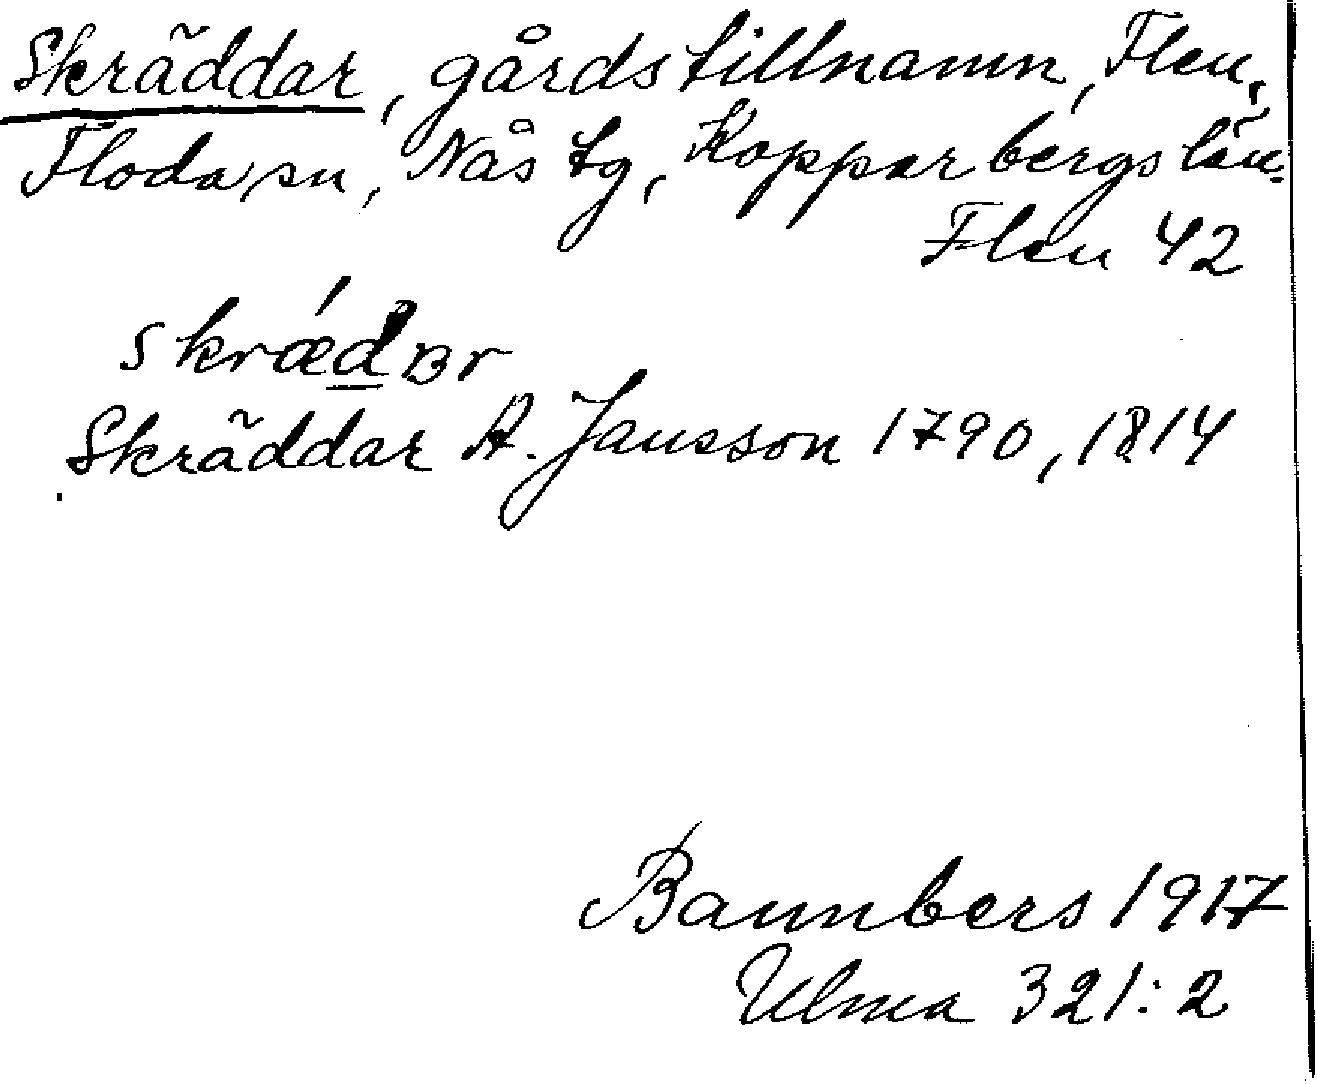 Skräddar, gårdstillnamn, Flen,
Floda sn, Nås tg, Kopparbergs län.
Flen 42
skrǽdʙr
Skräddar A. Jansson 1790, 1814
Bannbers 1917
Ulma 321:2